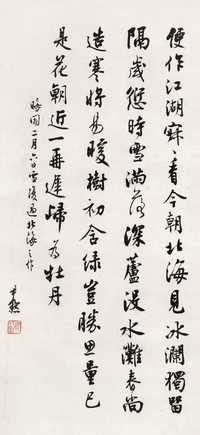 便作江湖看今朝北海見冰瀾獨留
隔歲愆時雪滿落深蘆淺水灘春尚
造寒將易暖樹初含綠豈勝思量已
是花朝近一再遲歸為牡丹
二月六日雪後過北海之作
尹默